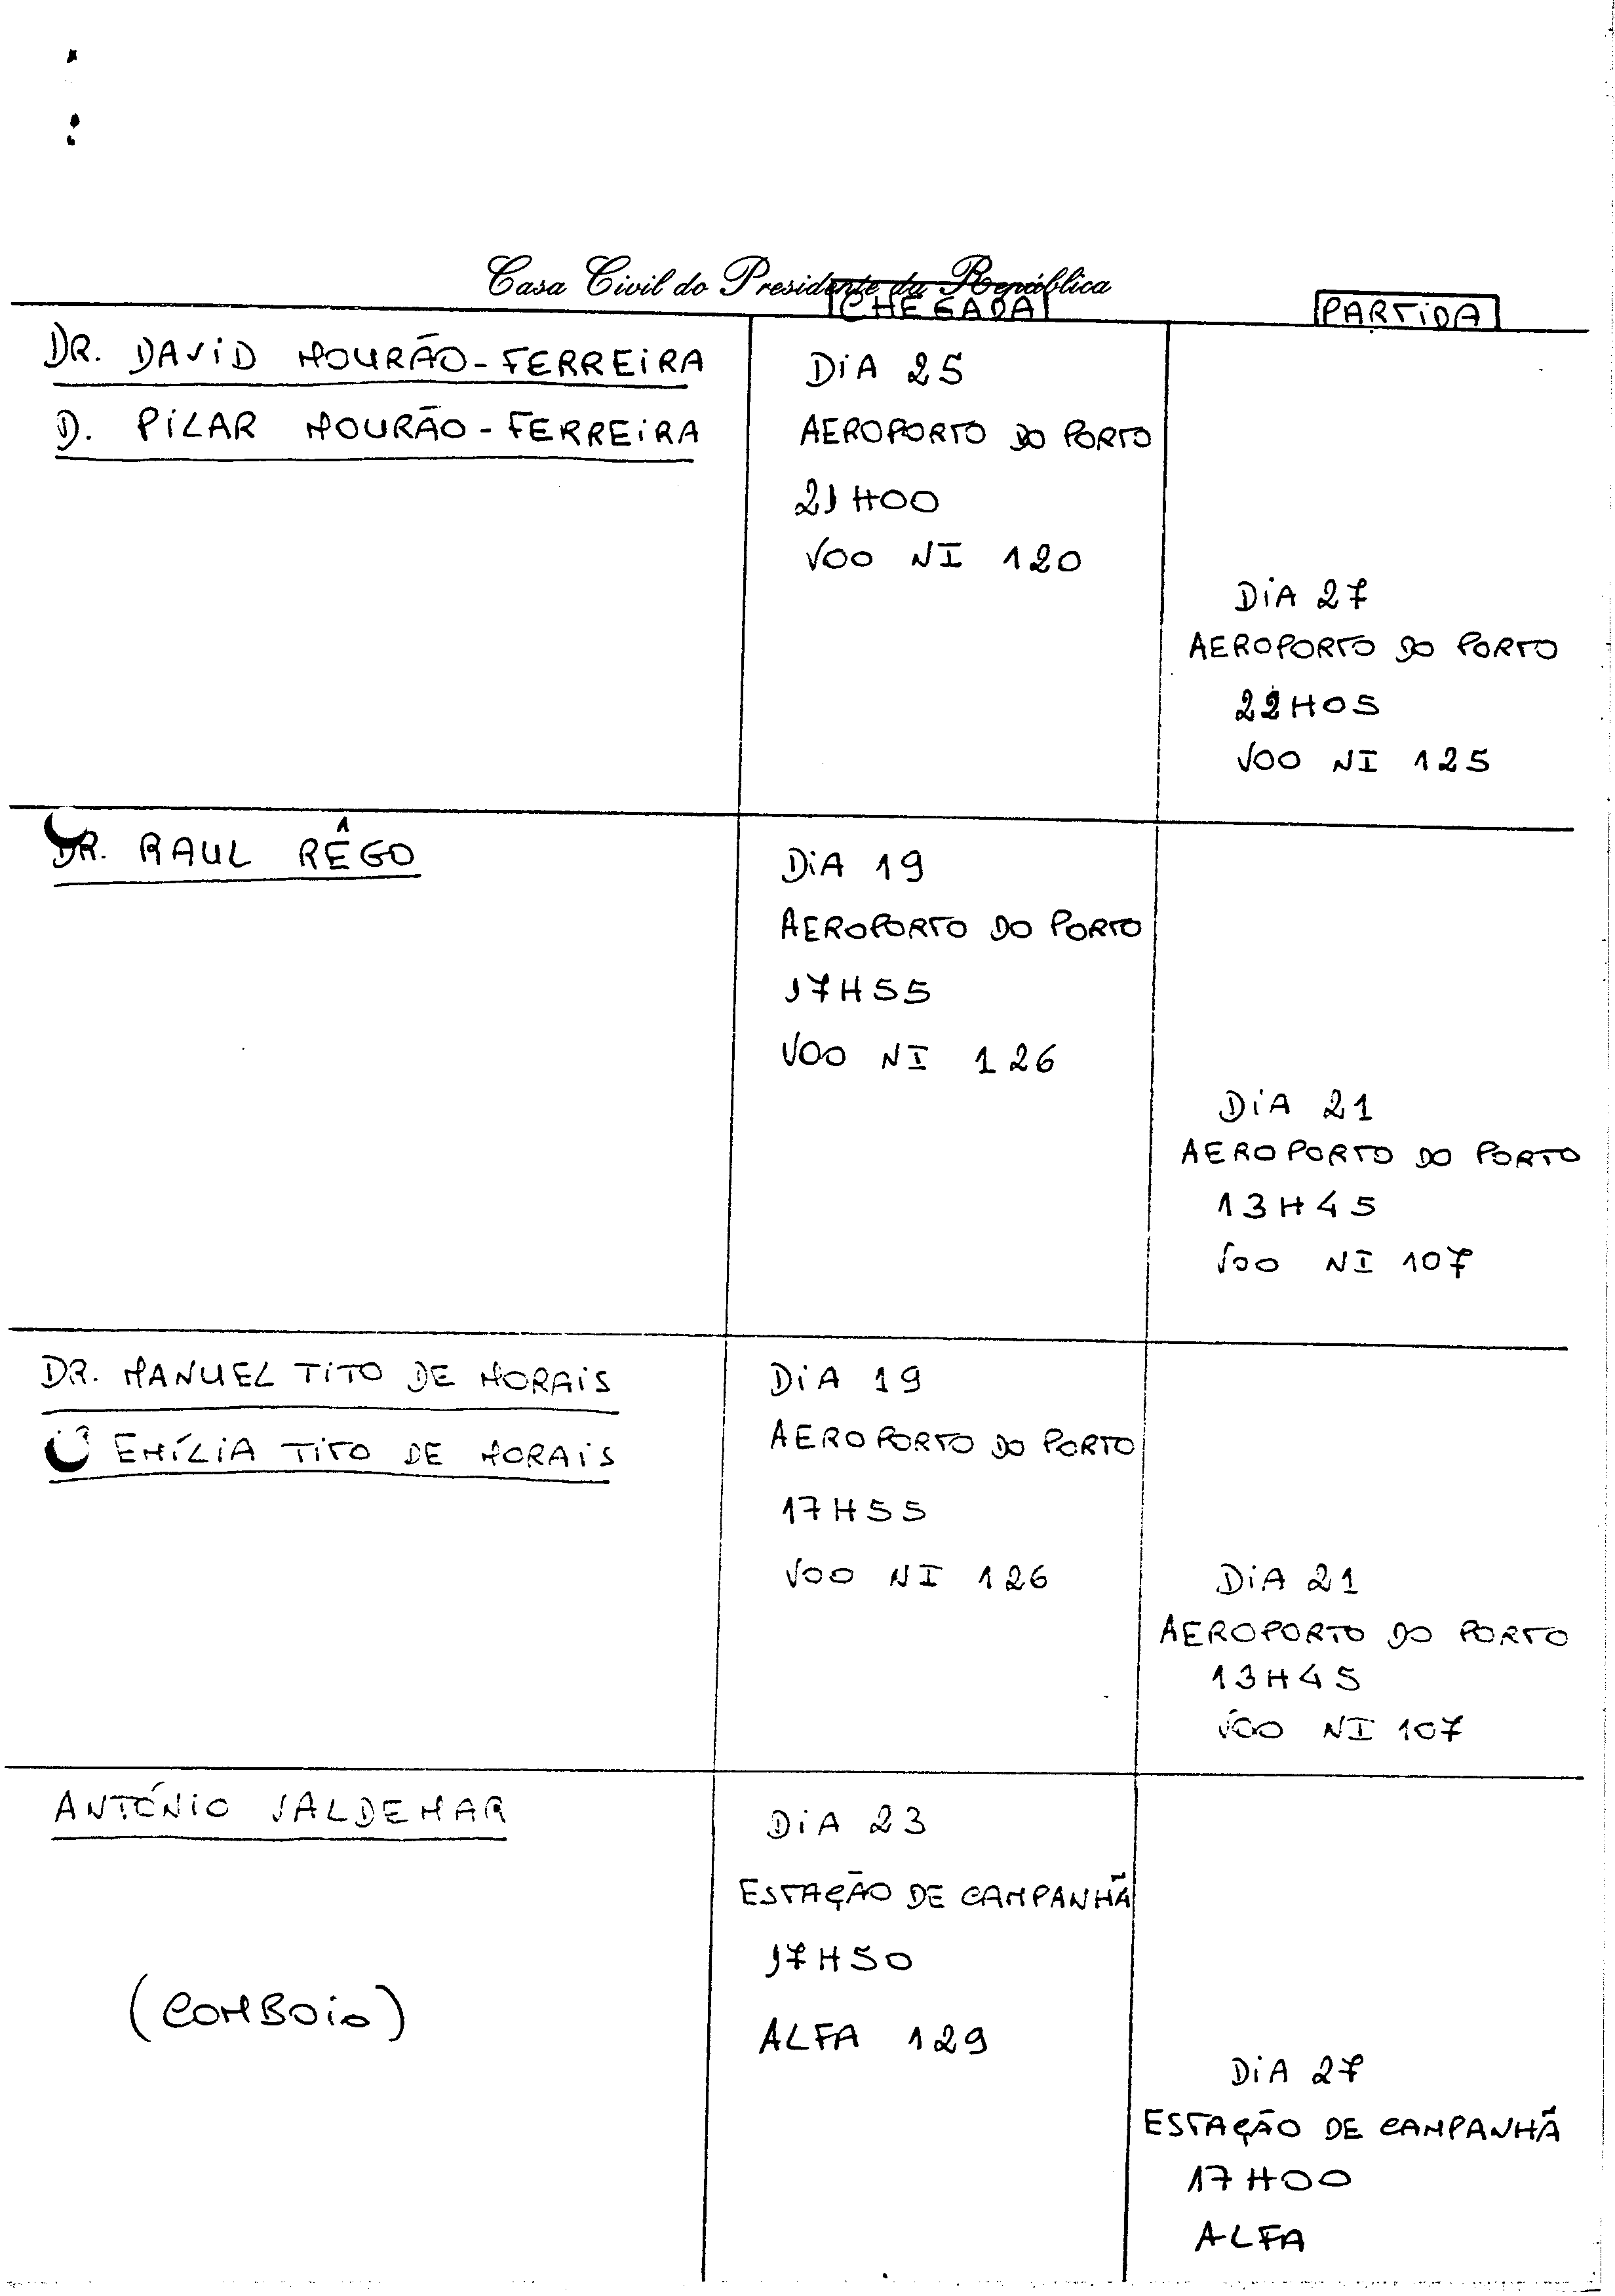 Casa Civil do Presidente da República
CHEGADA
PARTIDA
DR. DAVID MOURÃO-FERREIRA
D. PILAR MOURÃO-FERREIRA
DIA 25
AEROPORTO DO PORTO
21H00
VOO NI 120
DIA 27
AEROPORTO DO PORTO
22H05
VOO NI 125
DR. RAUL RÊGO
DIA 19
AEROPORTO DO PORTO
17H55
VOO NI 126
DIA 21
AEROPORTO DO PORTO
13H45
VOO NI 107
DR. MANUEL TITO DE MORAIS
EMÍLIA TITO DE MORAIS
DIA 19
AEROPORTO DO PORTO
17H55
VOO NI 126
DIA 21
AEROPORTO DO PORTO
13H45
VOO NI 107
ANTÓNIO VALDEMAR
(COMBOIO)
DIA 23
ESTAÇÃO DE CAMPANHÃ
17H50
ALFA 129
DIA 27
ESTAÇÃO DE CAMPANHÃ
17H00
ALFA